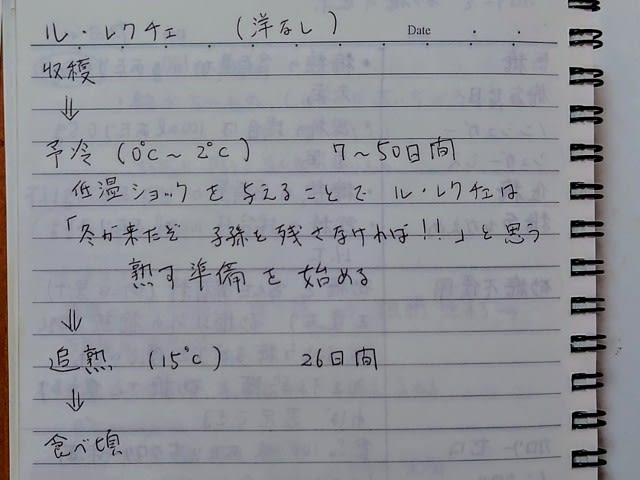 ル・レクチェ (洋なし) Date
収穫
⇓
予冷 (0℃〜2℃) 7〜50日間
低温ショックを与えることでル・レクチェは
「冬が来たぞ 子孫を残さなければ!!」と思う
熟す準備を始める
⇓
追熟 (15℃) 26日間
⇓
食べ頃